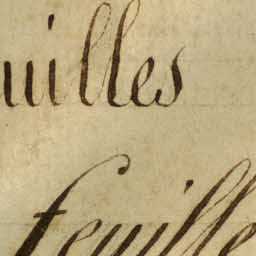 uilles
feuille